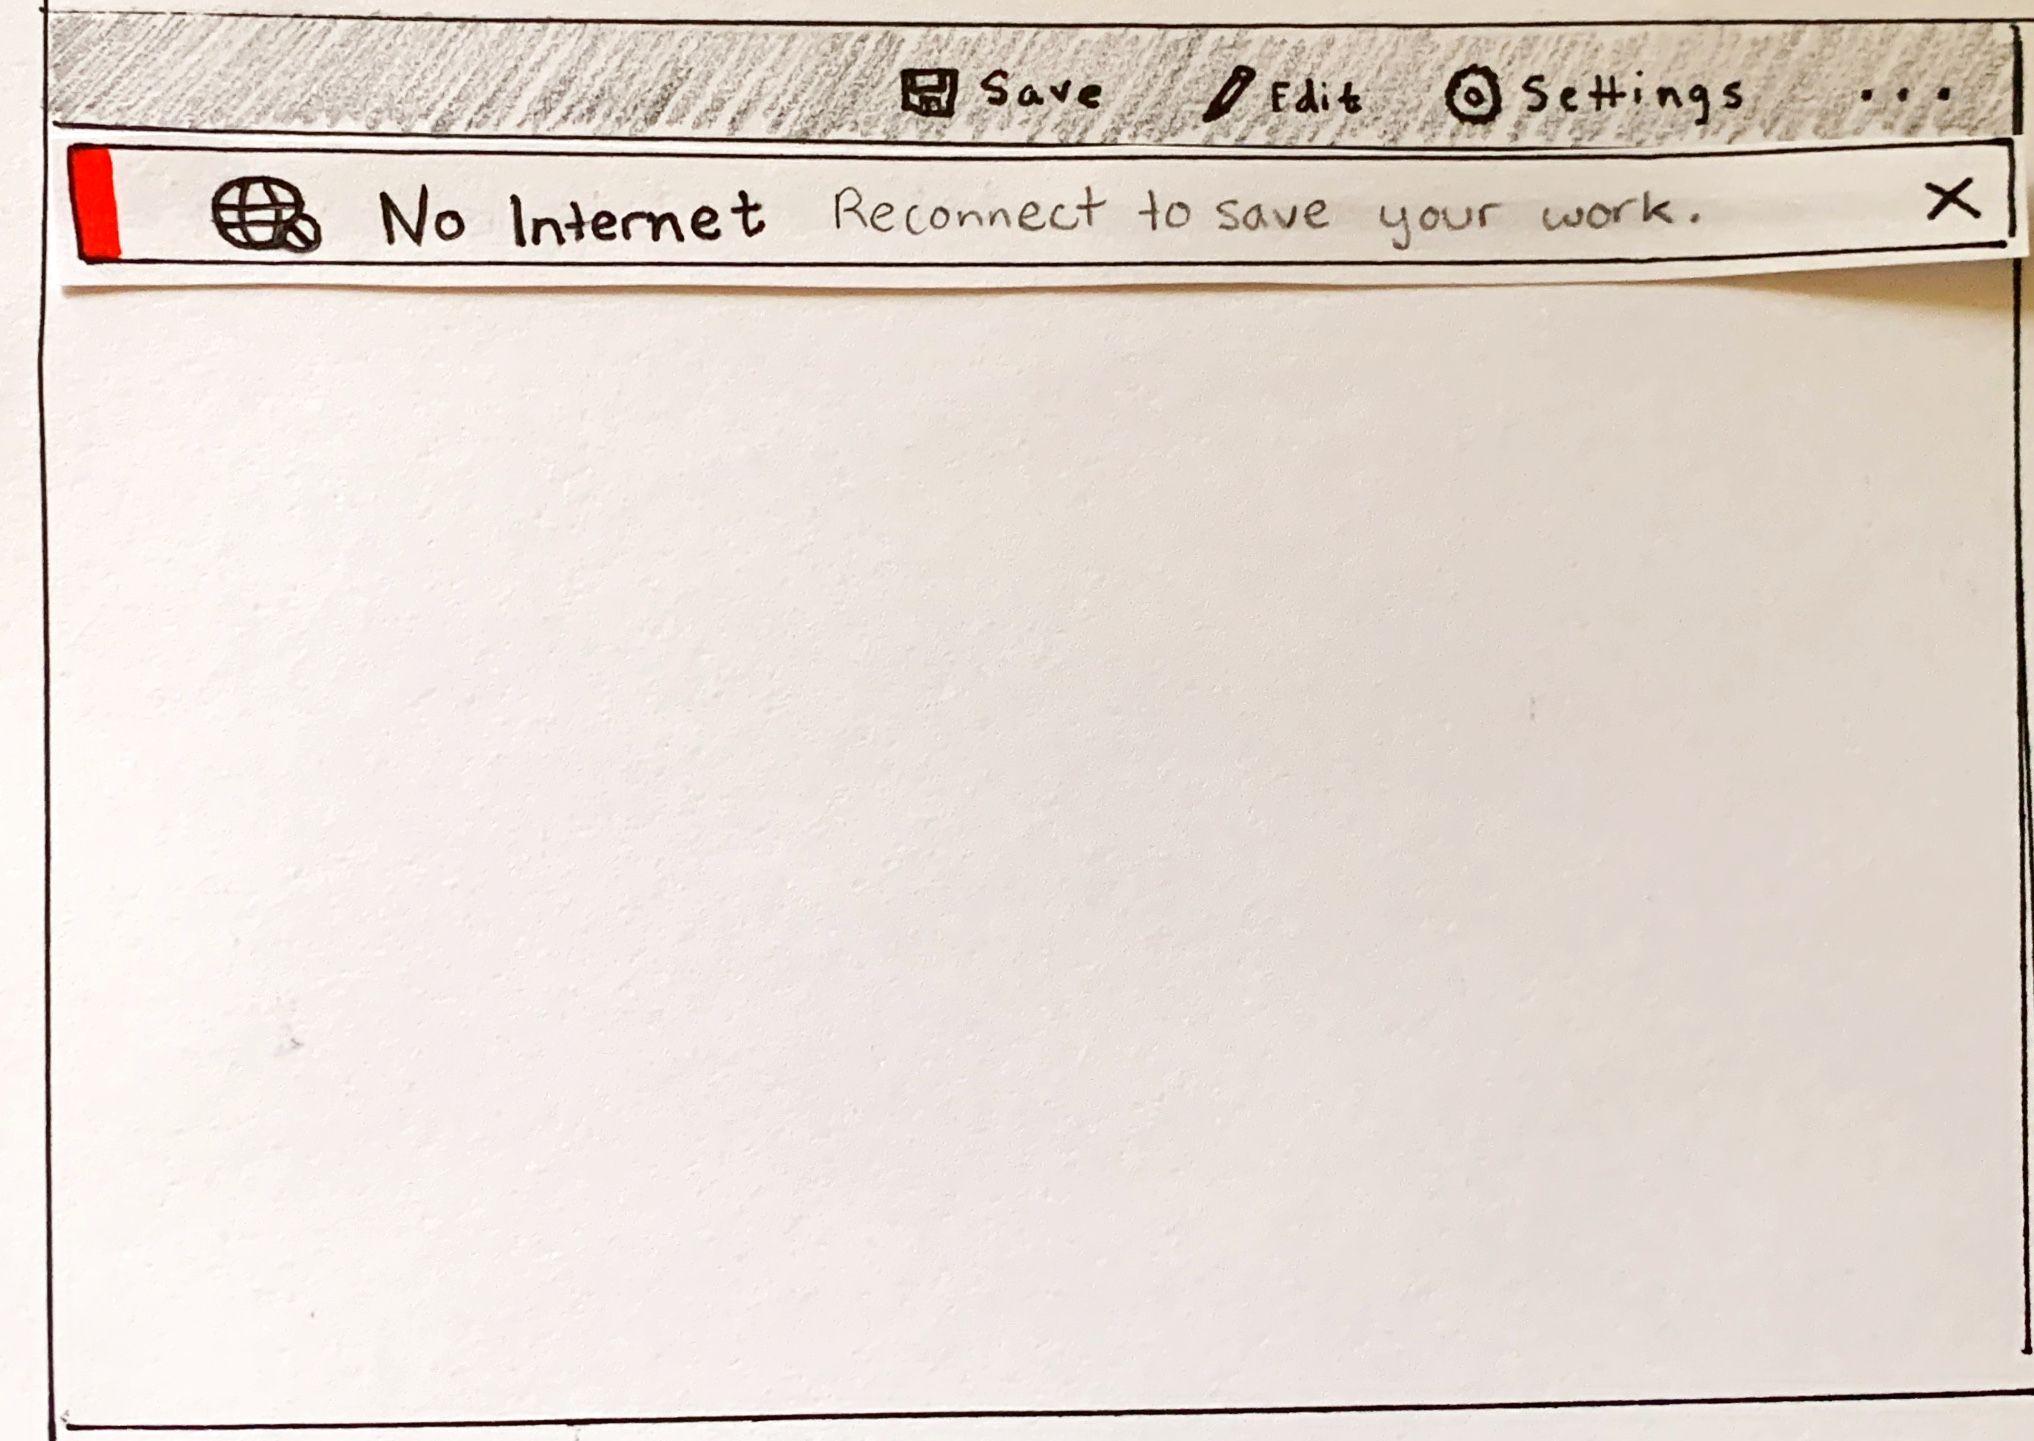 Save Edit Settings ...
No Internet Reconnect to save your work. X